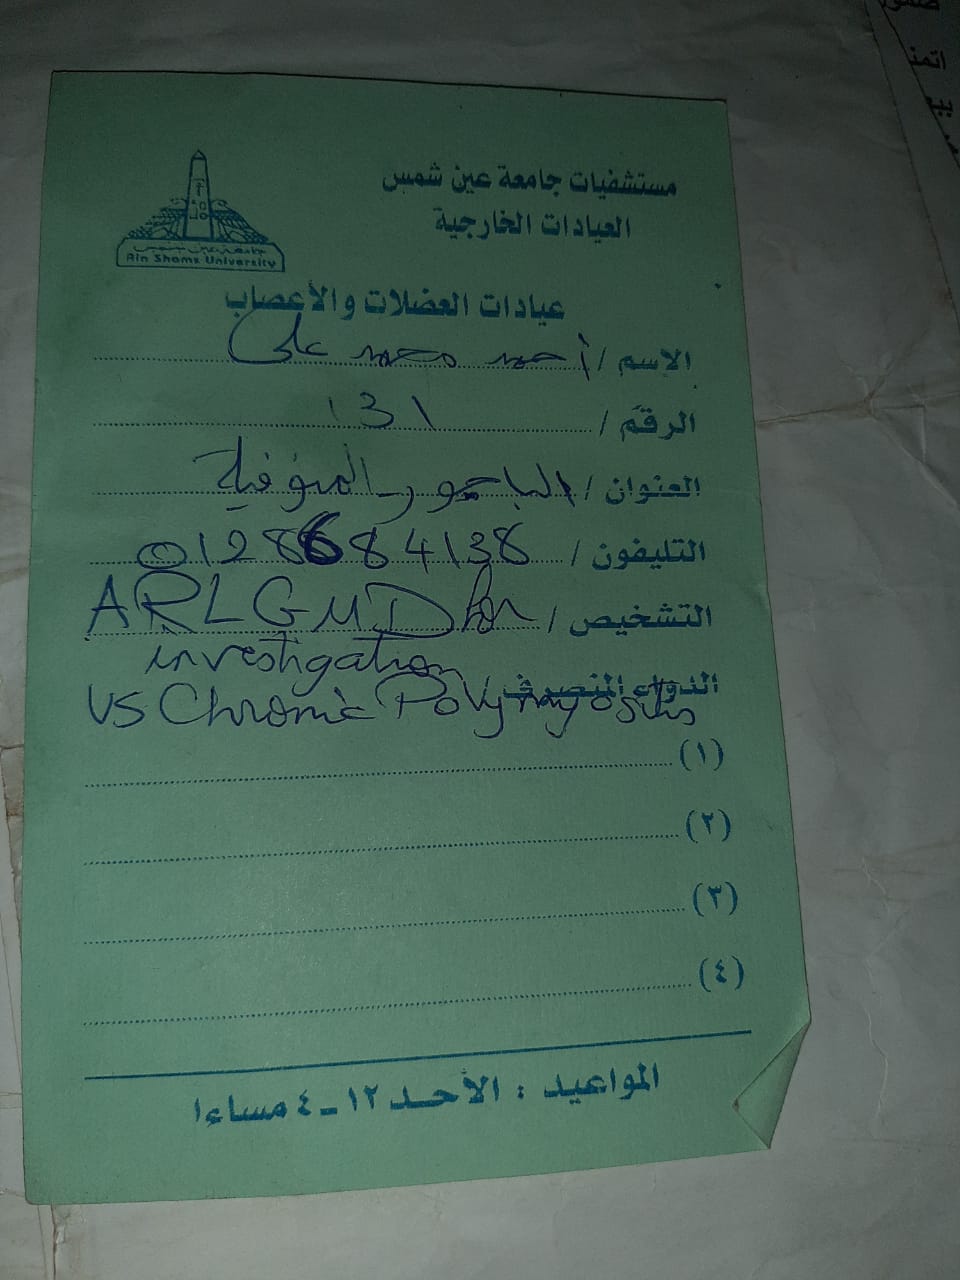 مستشفيات جامعة عين شمس
العيادات الخارجية
جامعة عين شمس
Ain Shams University
عيادات العضلات والأعصاب
الإسم / أحمد محمد على
الرقم / 131
العنوان / الباجور المنوفية
التليفون / 01286684138
التشخيص / ARLGMD for
investigation
الدواء المنصرف /
VS Chronic Polymyositis
(١)
(٢)
(٣)
(٤)
المواعيد : الأحد ١٢ - ٤ مساءا